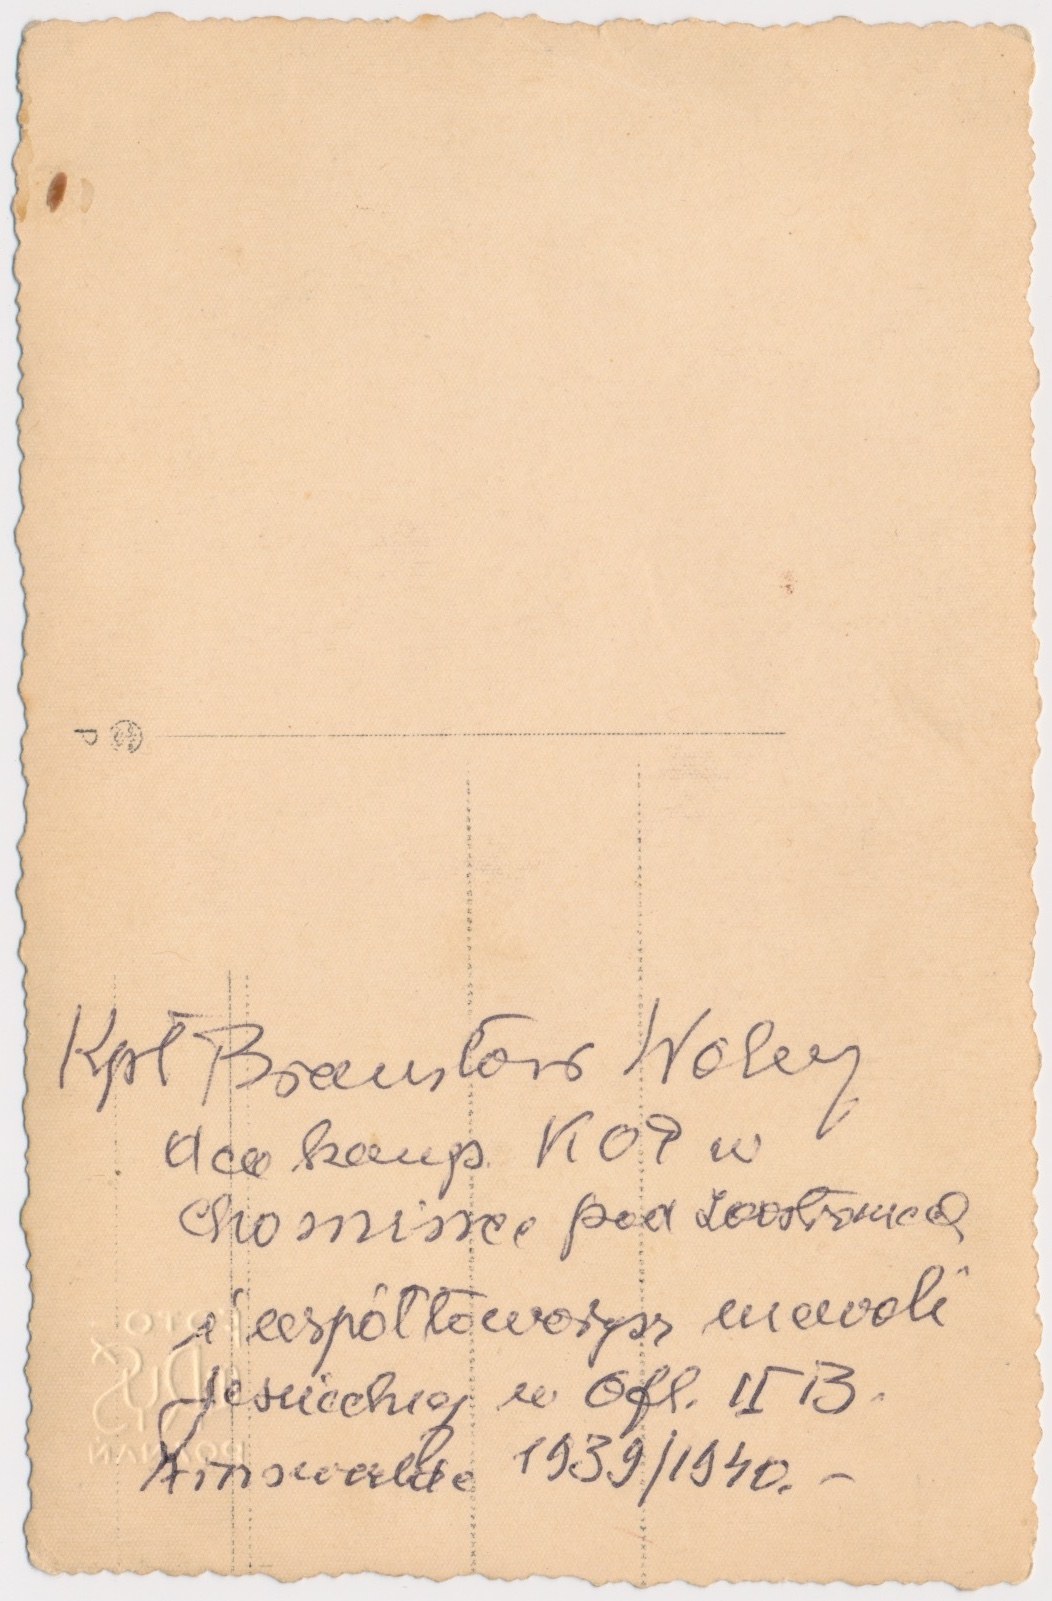 P
Kpt Bronisław Wolny
dca komp. KOP w
Chominee pod
i współtowarzysz niewoli
jenieckiej w Ofl. II B.
Arnswalde 1939/1940. –
FOTO
POZNAŃ